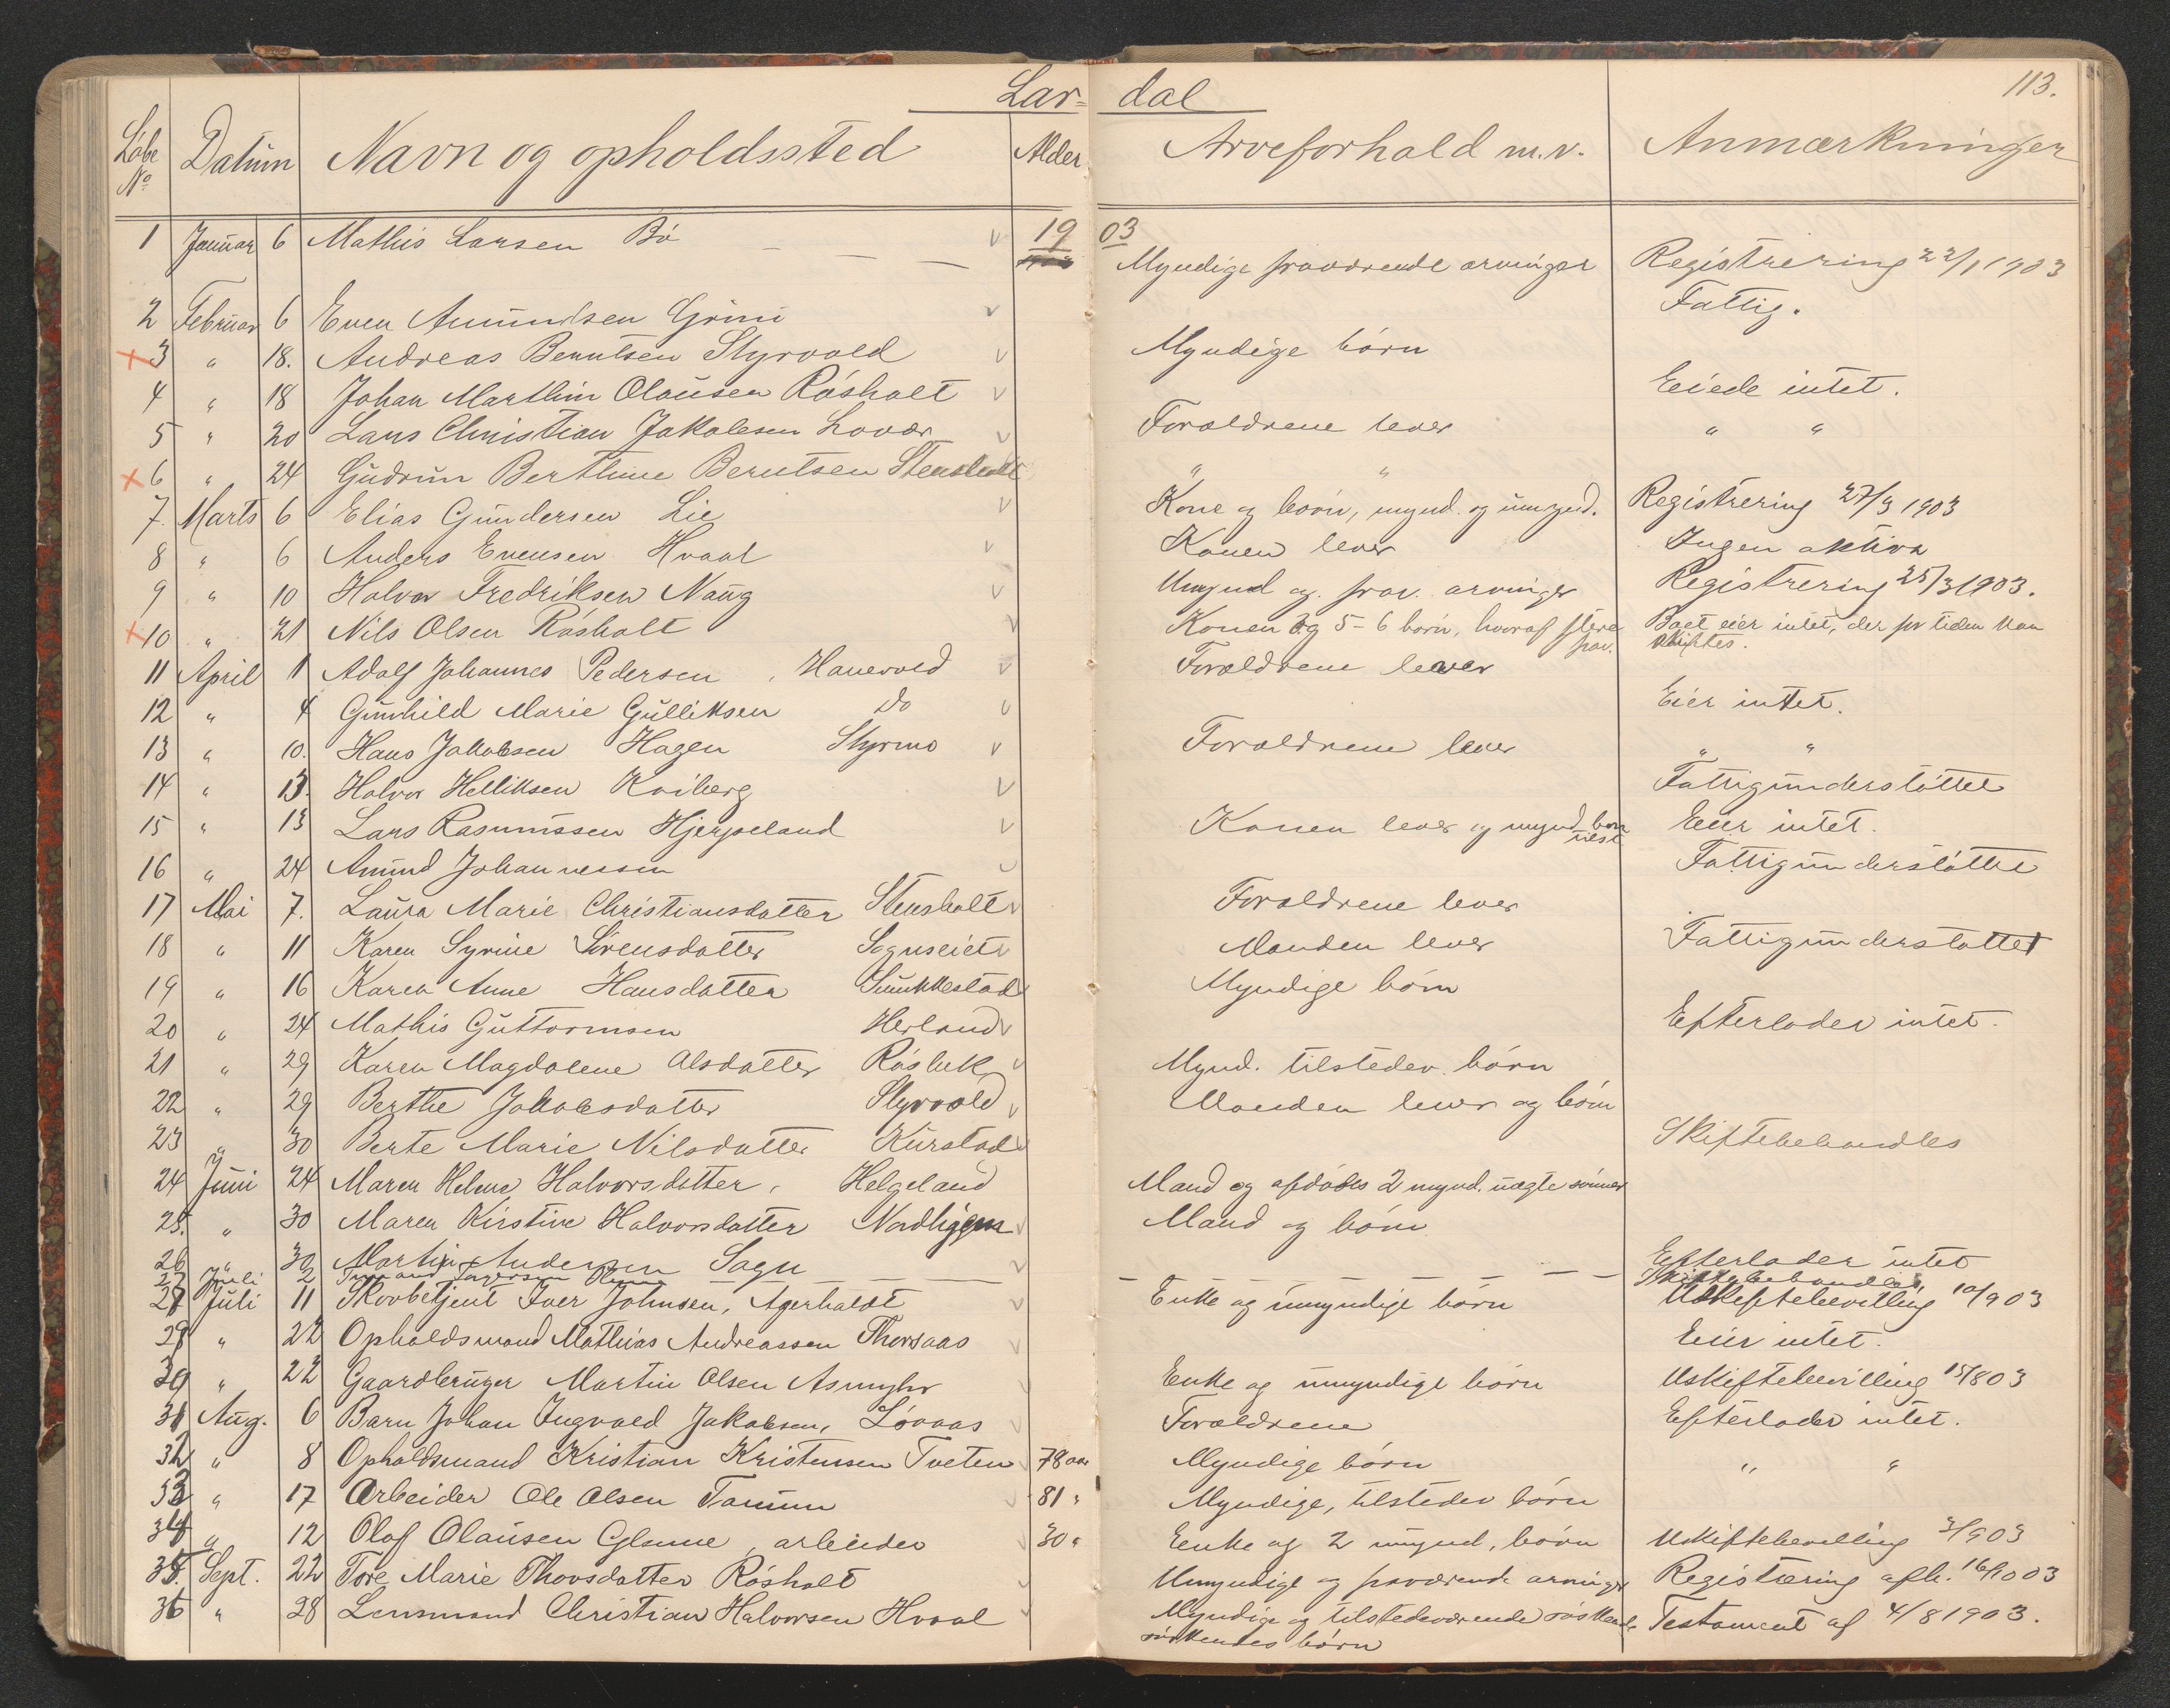 Lar= dal
113.
Löbe No Datum Navn og opholdssted Alder. Arveforhold m.v. Anmærkninger
1903
1 Januar 6 Mathis Larsen Bö Myndige fraværende arvinger Registrering 22/1 1903
2 Februar 6 Even Amundsen Grini Fattig.
3 " 18. Andreas Berntsen Styrvold Myndige börn
4 " 18 Johan Marthin Olausen Rösholt Eiede intet.
5 " 20 Lars Christian Jakobsen Forældrene lever " "
6 " 24 Gudrun Berthine Berntsen " "
7. Marts 6 Elias Gundersen Lie Kone og börn, mynd. og umynd. Registrering 27/3 1903
8 " 6 Anders Evensen Hvaal Konen lever Ingen aktiva
9 " 10 Halvor Fredriksen Naug Umynd og frav. arvinger Registrering 25/3 1903.
10 " 21 Nils Olsen Rösholt Konen og 5-6 börn, hvoraf flere frav. Boet eier intet, der for tiden kan skiftes.
11 April 1 Adolf Johannes Pedersen, Hanevold Forældrene lever
12 " 4 Gunhild Marie Gulliksen Do Eier intet.
13 " 10. Hans Jakobsen Hagen Styrmo Forældrene lever " "
14 " 13. Halvor Helliksen Fattigunderstöttet
15 " 13 Lars Rasmussen Hjerpeland Konen lever og mynd. börn tilst. Eier intet.
16 " 24 Amund Johannessen Fattigunderstöttet
17 Mai 7. Laura Marie Christiansdatter Stensholt Forældrene lever
18 " 11 Karen Syrine Sörensdatter Sognseiet Manden lever Fattigunderstöttet
19 " 16 Karen Anne Hansdatter Myndige börn
20 " 24 Mathis Guttormsen Herland Efterlader intet.
21 " 29 Karen Magdalene Olsdatter Mynd. tilstedev. börn
22 " 29 Berthe Jakobsdatter Styrvold Manden lever og börn
23 " 30 Berte Marie Nilsdatter Skiftebehandles
24 Juni 24 Maren Helene Halvorsdatter, Helgeland Mand og afdödes 2 mynd. uægte sönner
25. " 30 Maren Kirstine Halvorsdatter Mand og börn
26 " 30 Martin Andersen Sagn Efterlader intet
27 Juli 2 Skiftebehandles
28 Juli 11 Skovbetjent Iver Johnsen, Agerholdt Enke og umyndige börn Uskiftebevilling 10/9 03
29 " 22 Opholdsmand Mathias Andreassen Thorsaas Eier intet.
30 " 22 Gaardbruger Martin Olsen Asmyhr Enke og umyndige börn Uskiftebevilling 15/8 03
31 Aug. 6 Barn Johan Ingvald Jakobsen, Lövaas Forældrene Efterlader intet.
32 " 8 Opholdsmand Kristian Kristensen Tveten 78 aar Myndige börn " "
33 " 17 Arbeider Ole Olsen Tanum 81 " Myndige, tilstedev börn
34 " 12 Olaf Olausen Glenne, arbeider 30 " Enke og 2 umynd. börn Uskiftebevilling 3/9 03
35. Sept. 22 Tore Marie Thovsdatter Rösholt Umyndige og fraværende arvinger Registrering afh. 16/10 03
36 " 28 Lensmand Christian Halvorsen Hvaal Myndige og tilstedeværende söskende, söskendes börn Testament af 4/8 1903.